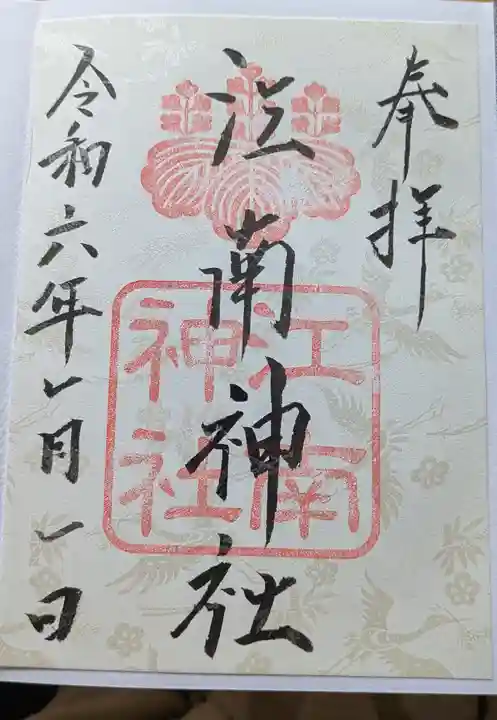 奉拝
江南神社
江南
神社
令和六年一月一日